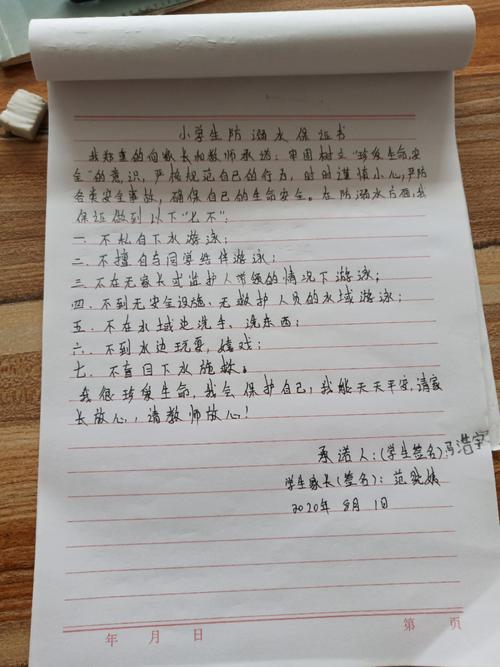 小学生防溺水保证书
我郑重的向家长和教师承诺：牢固树立“珍爱生命，安
全”的意识，严格规范自己的行为，时时谨慎小心，严防
各类安全事故，确保自己的生命安全。在防溺水方面，我
保证做到以下“七不”：
一．不私自下水游泳；
二．不擅自与同学结伴游泳；
三．不在无家长或监护人带领的情况下游泳；
四．不到无安全设施、无救护人员的水域游泳；
五．不在水域边洗手、洗东西；
六．不到水边玩耍、嬉戏；
七．不盲目下水施救。
我很珍爱生命，我会保护自己，我能天天平安，请家
长放心，请教师放心！
承诺人：（学生签名）冯浩宇
学生家长（签名）：范
2020年8月1日
年 月 日 第 页